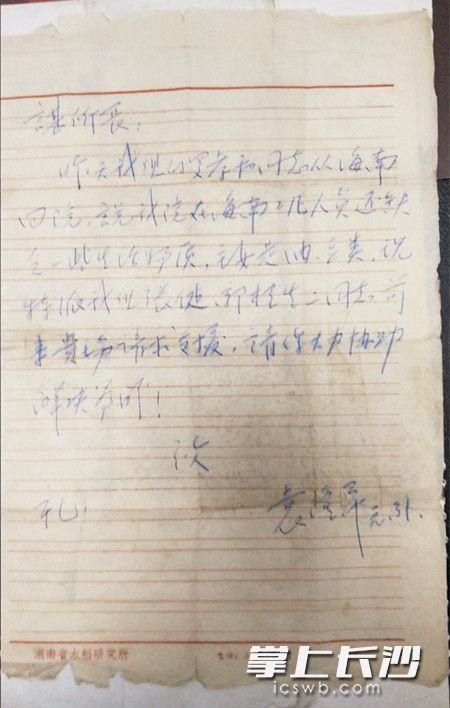 谌所长：
昨天我组的罗孝和同志从海南
回院，说我院在海南工作人员还缺
乏一些生活物质，主要是油、豆类，现
特派我组张健、郭桂生二同志前
来贵场请求支援，请你大力协助
解决为盼！
致
礼！
袁隆平 元.31.
湖南省水稻研究所
电话：
掌上长沙
icswb.com